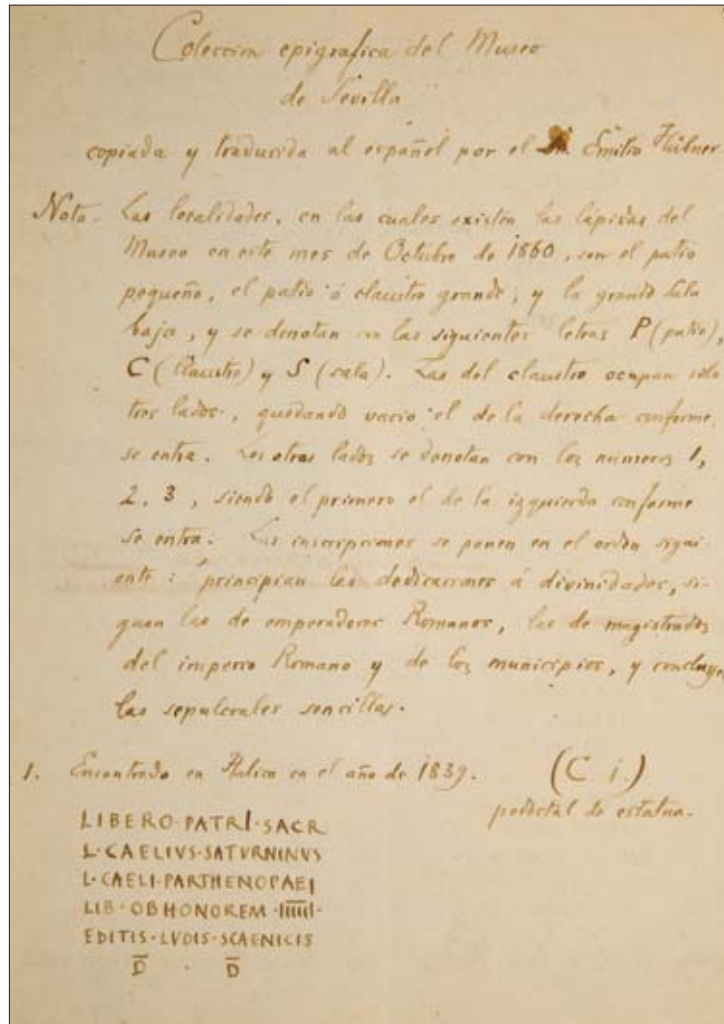 Coleccion epigrafica del Museo
de Sevilla
copiada y traducida al español por el Emilio Hübner
Nota. Las localidades, en las cuales existen las lápidas del
Museo en este mes de Octubre de 1860, son el patio
pequeño, el patio ó claustro grande, y la grande sala
baja, y se denotan con las siguientes letras P (patio),
C (Claustro) y S (sala). Las del claustro ocupan solo
tres lados, quedando vacio el de la derecha conforme
se entra. Los otros lados se denotan con los numeros 1,
2, 3, siendo el primero el de la izquierda conforme
se entra. Las inscripciones se ponen en el orden sigui-
ente: principian las dedicaciones á divinidades, si-
guen las de emperadores Romanos, las de magistrados
del imperio Romano y de los municipios, y concluyen
las sepulcrales sencillas.
1. Encontrado en Italica en el año de 1839. (C 1.)
pedestal de estatua.
LIBERO·PATRI·SACR
L·CAELIVS·SATVRNINVS
L·CAELI·PARTHENOPAEI
LIB·OB HONOREM·IIIIII·
EDITIS·LVDIS·SCAENICIS
D · D